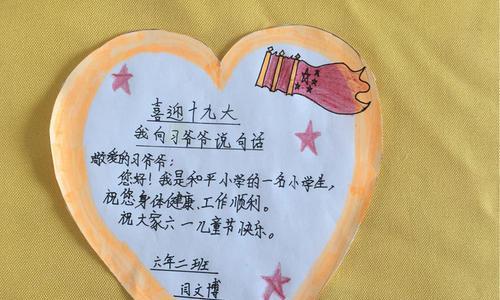 喜迎十九大
我向习爷爷说句话
敬爱的习爷爷：
您好！我是和平小学的一名小学生，
祝您身体健康、工作顺利。
祝大家六一儿童节快乐。
六年二班
闫文博